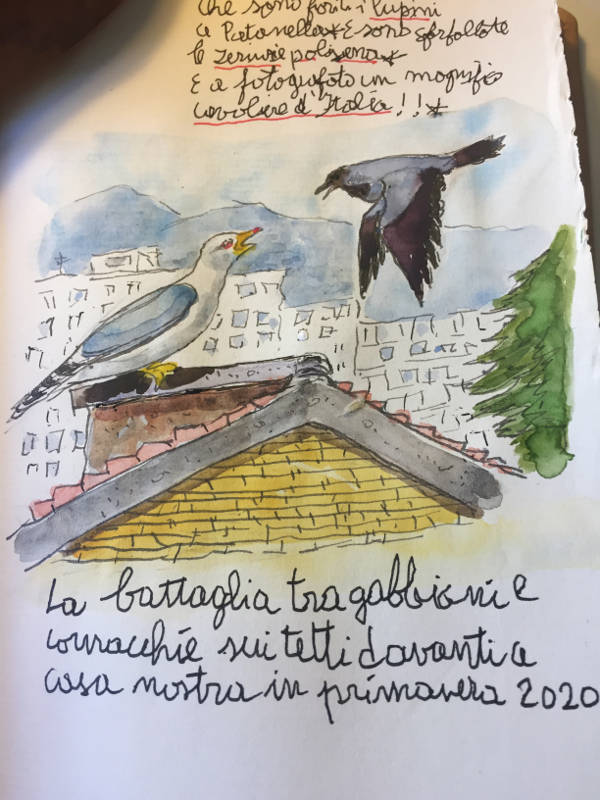 che sono fioriti i lupini
a Patanella * E sono sfarfallate
le zerinzie polissena *
E ho fotografato un magnifico
cavaliere d'Italia!! *
La battaglia tra gabbiani e
cornacchie sui tetti davanti a
casa nostra in primavera 2020